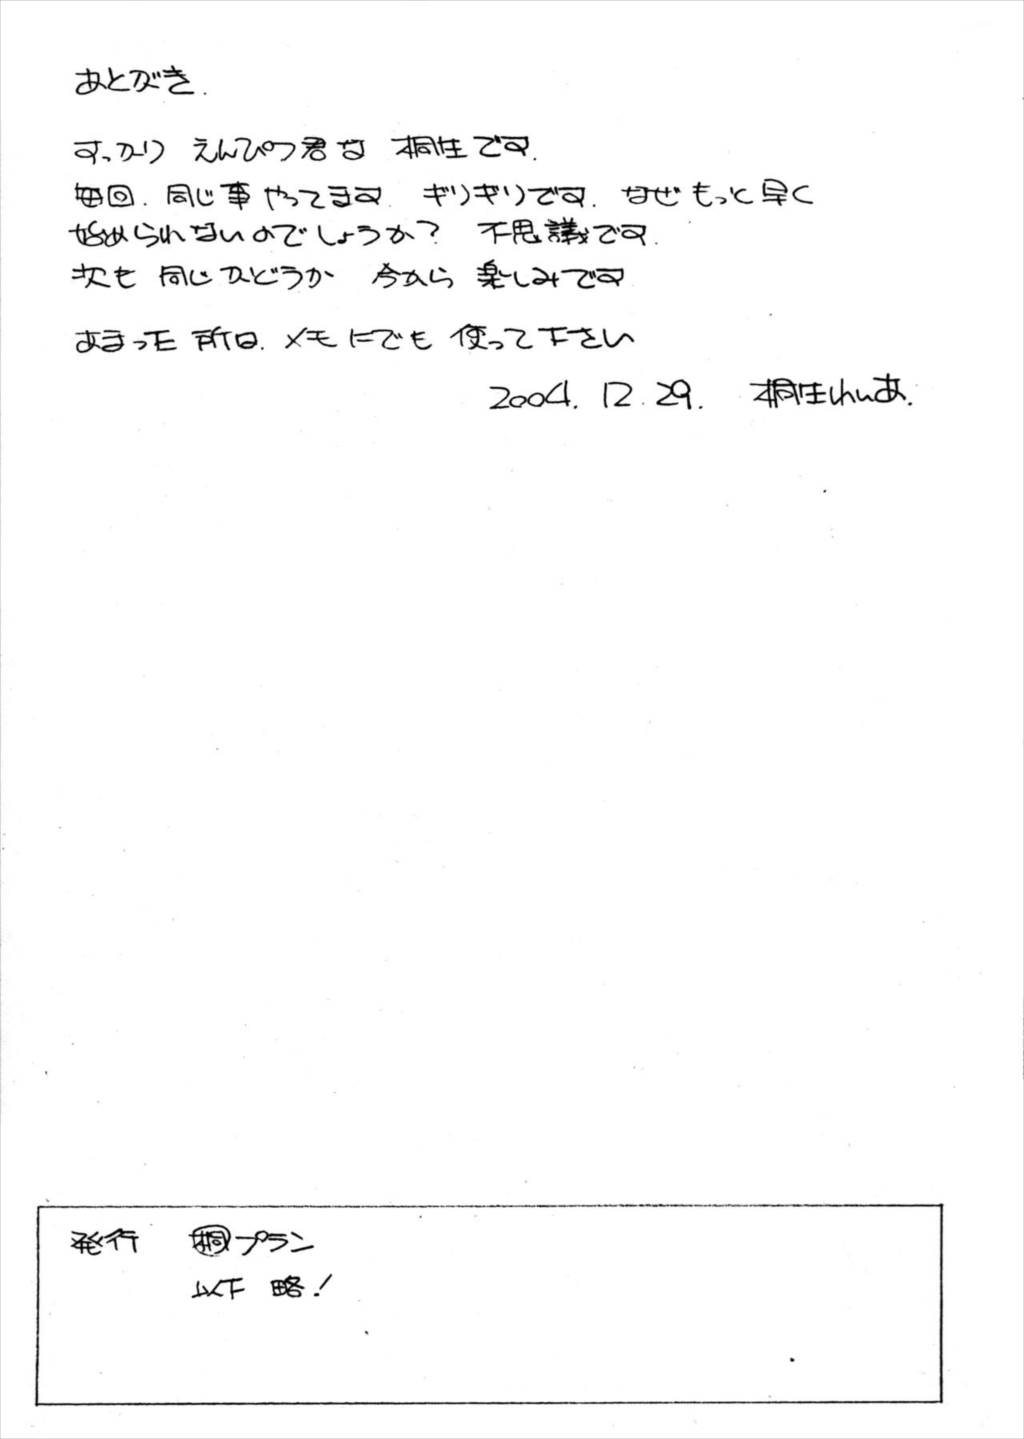 あとがき.
すっかり えんぴつ君な 桐生です.
毎回. 同じ事やってます. ギリギリです. なぜもっと早く
始められないのでしょうか? 不思議です.
次も 同じかどうか 今から 楽しみです
あまった所は. メモにでも 使って下さい
2004. 12. 29. 桐生れいあ.
発行 ㊀桐プラン
以下 略!